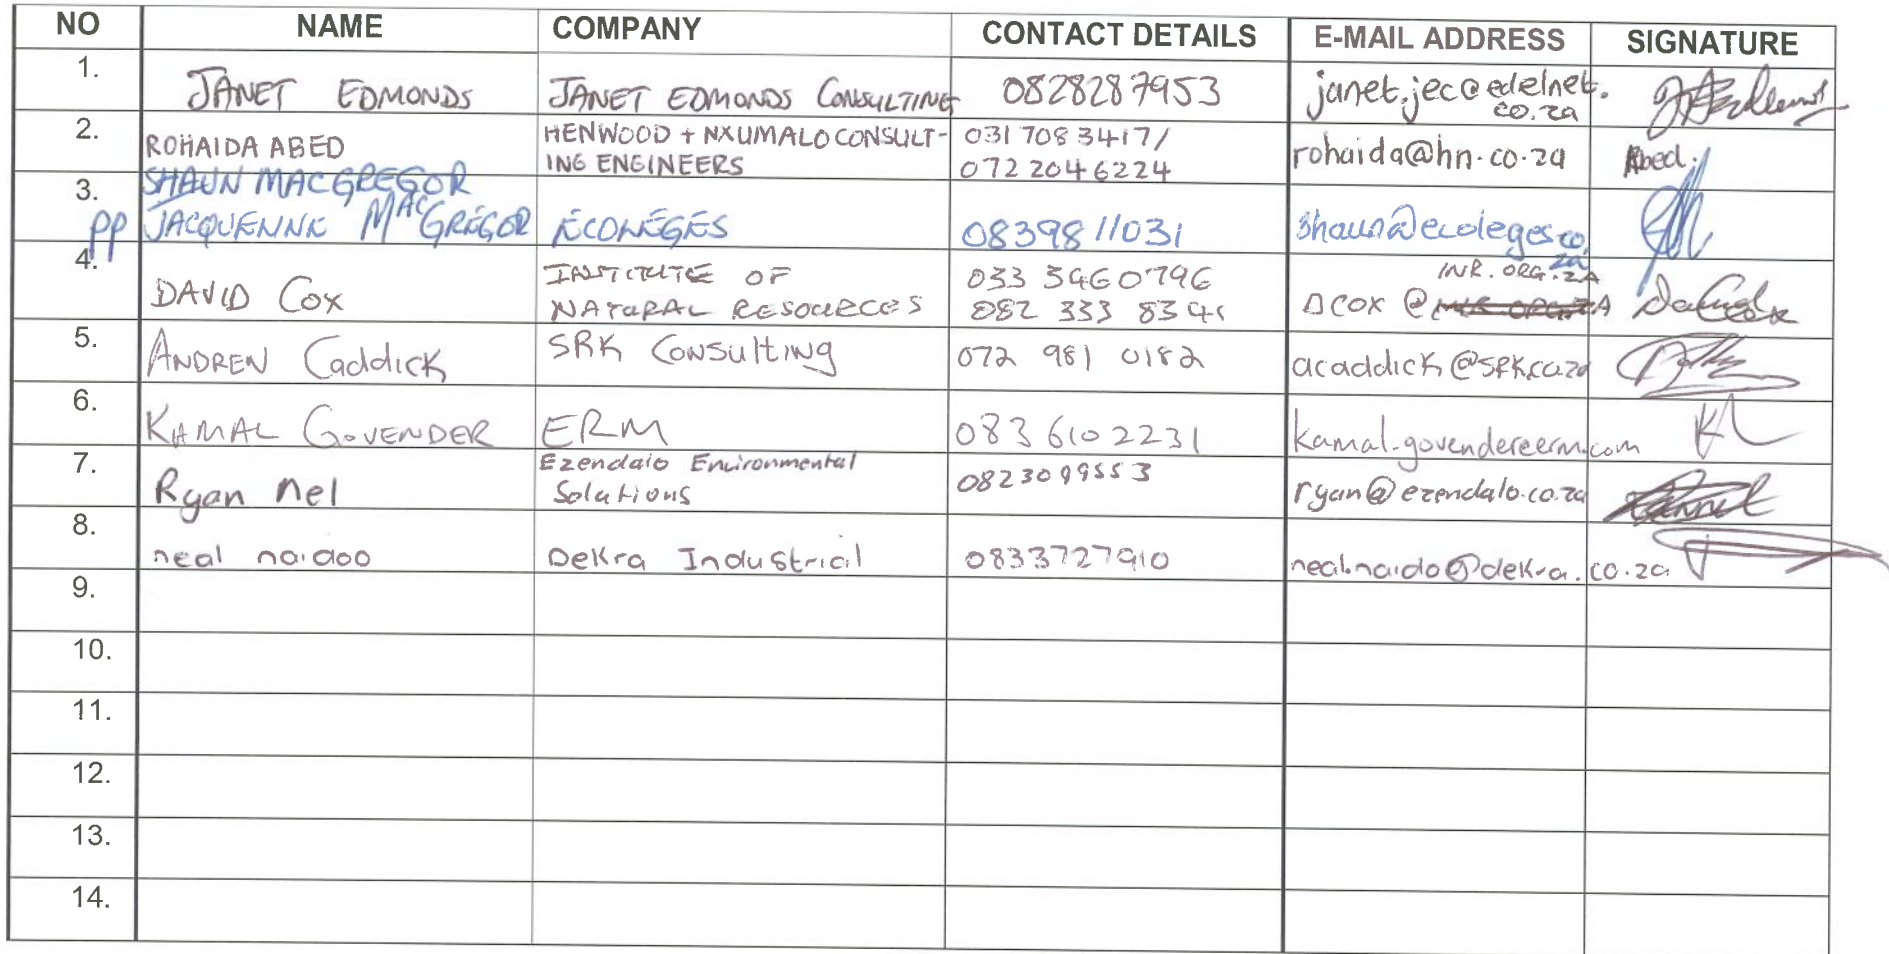 NO NAME COMPANY CONTACT DETAILS E-MAIL ADDRESS SIGNATURE
1. JANET EDMONDS JANET EDMONDS CONSULTING 0828287953 janet.jec@edelnet.
co.za
2. ROHAIDA ABED HENWOOD + NXUMALO CONSULT- 031 7083417/ rohaida@hn.co.za Abed.
ING ENGINEERS 072 2046224
3. SHAUN MACGREGOR
pp JACQUENNE MACGREGOR ECOLEGES 0839811031 shaun@ecoleges.co.
za
4. DAVID COX INSTITUTE OF 033 3460796 INR.ORG.ZA
NATURAL RESOURCES 082 333 8341 DCOX @
5. ANDREW Caddick SRK Consulting 072 981 0182 acaddick@srk.co.za
6. KAMAL GOVENDER ERM 083 6102231 kamal.govender@erm.com
7. Ryan Nel Ezendalo Environmental 0823099553 ryan@ezendalo.co.za
Solutions
8. neal naidoo Dekra Industrial 0833727910 neal.naido@dekra.co.za
9.
10.
11.
12.
13.
14.